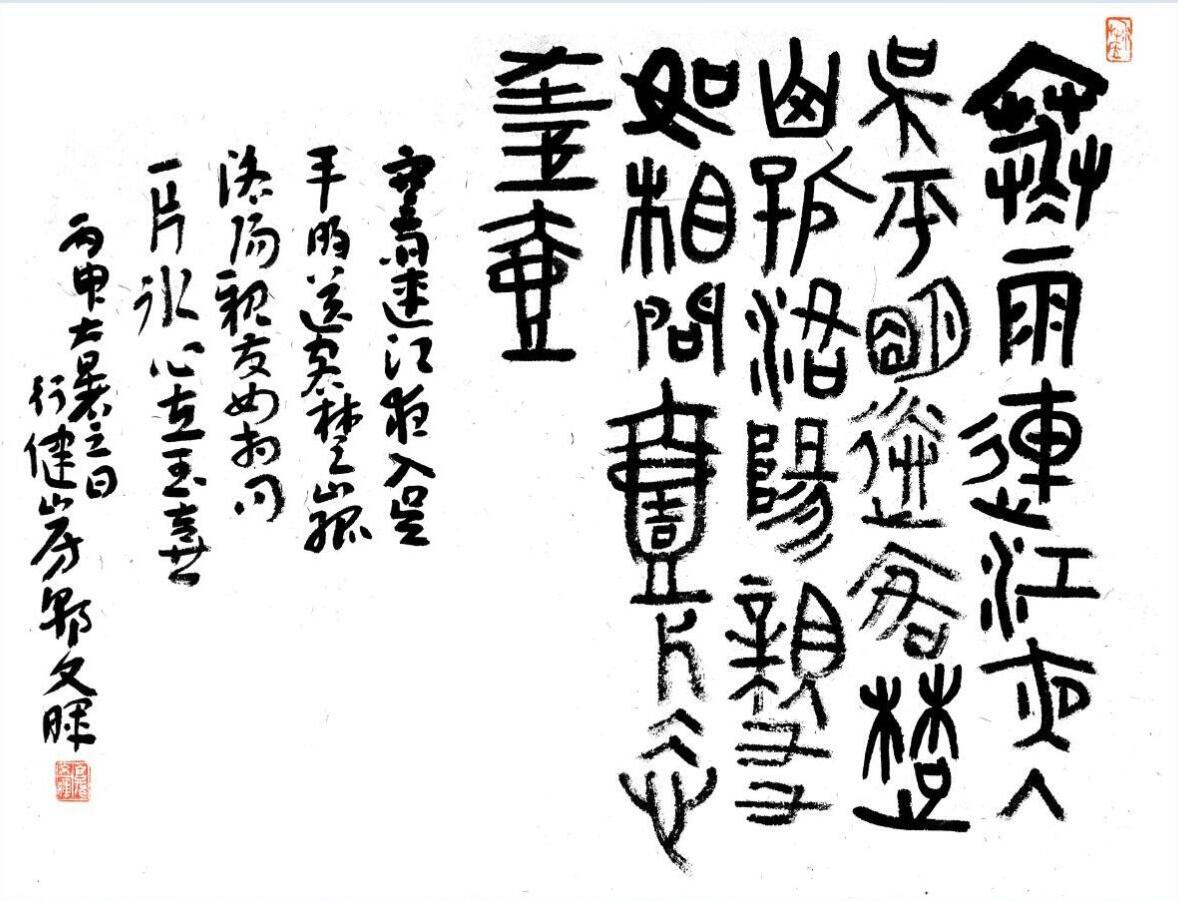 寒雨連江夜入
吳平明送客楚
山孤洛陽親友
如相問壹片冰心
在玉壺
寒雨連江夜入吳
平明送客楚山孤
洛陽親友如相問
一片冰心在玉壺
丙申大暑之日
行健山房文暉